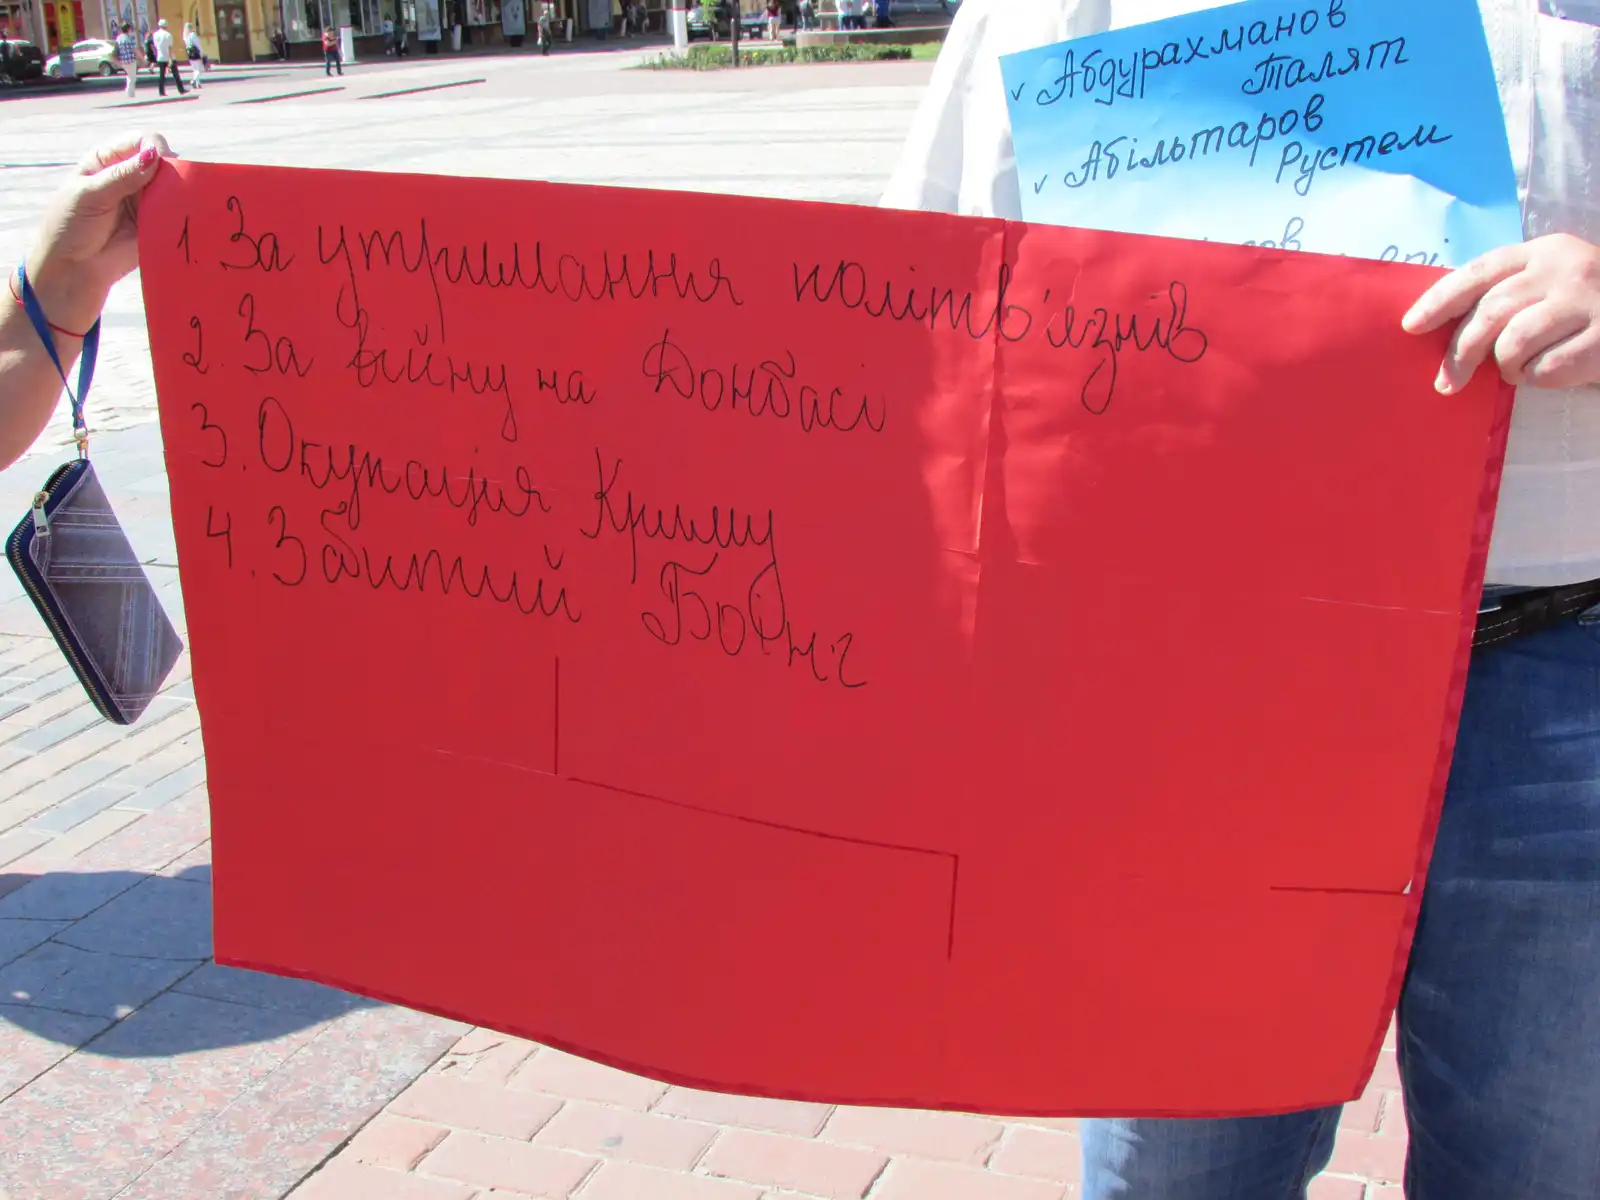 ✓ Абдурахманов
Талят
✓ Абільтаров
Рустем
1. За утримання політв'язнів
2. За війну на Донбасі
3. Окупація Криму
4. Збитий Боінг